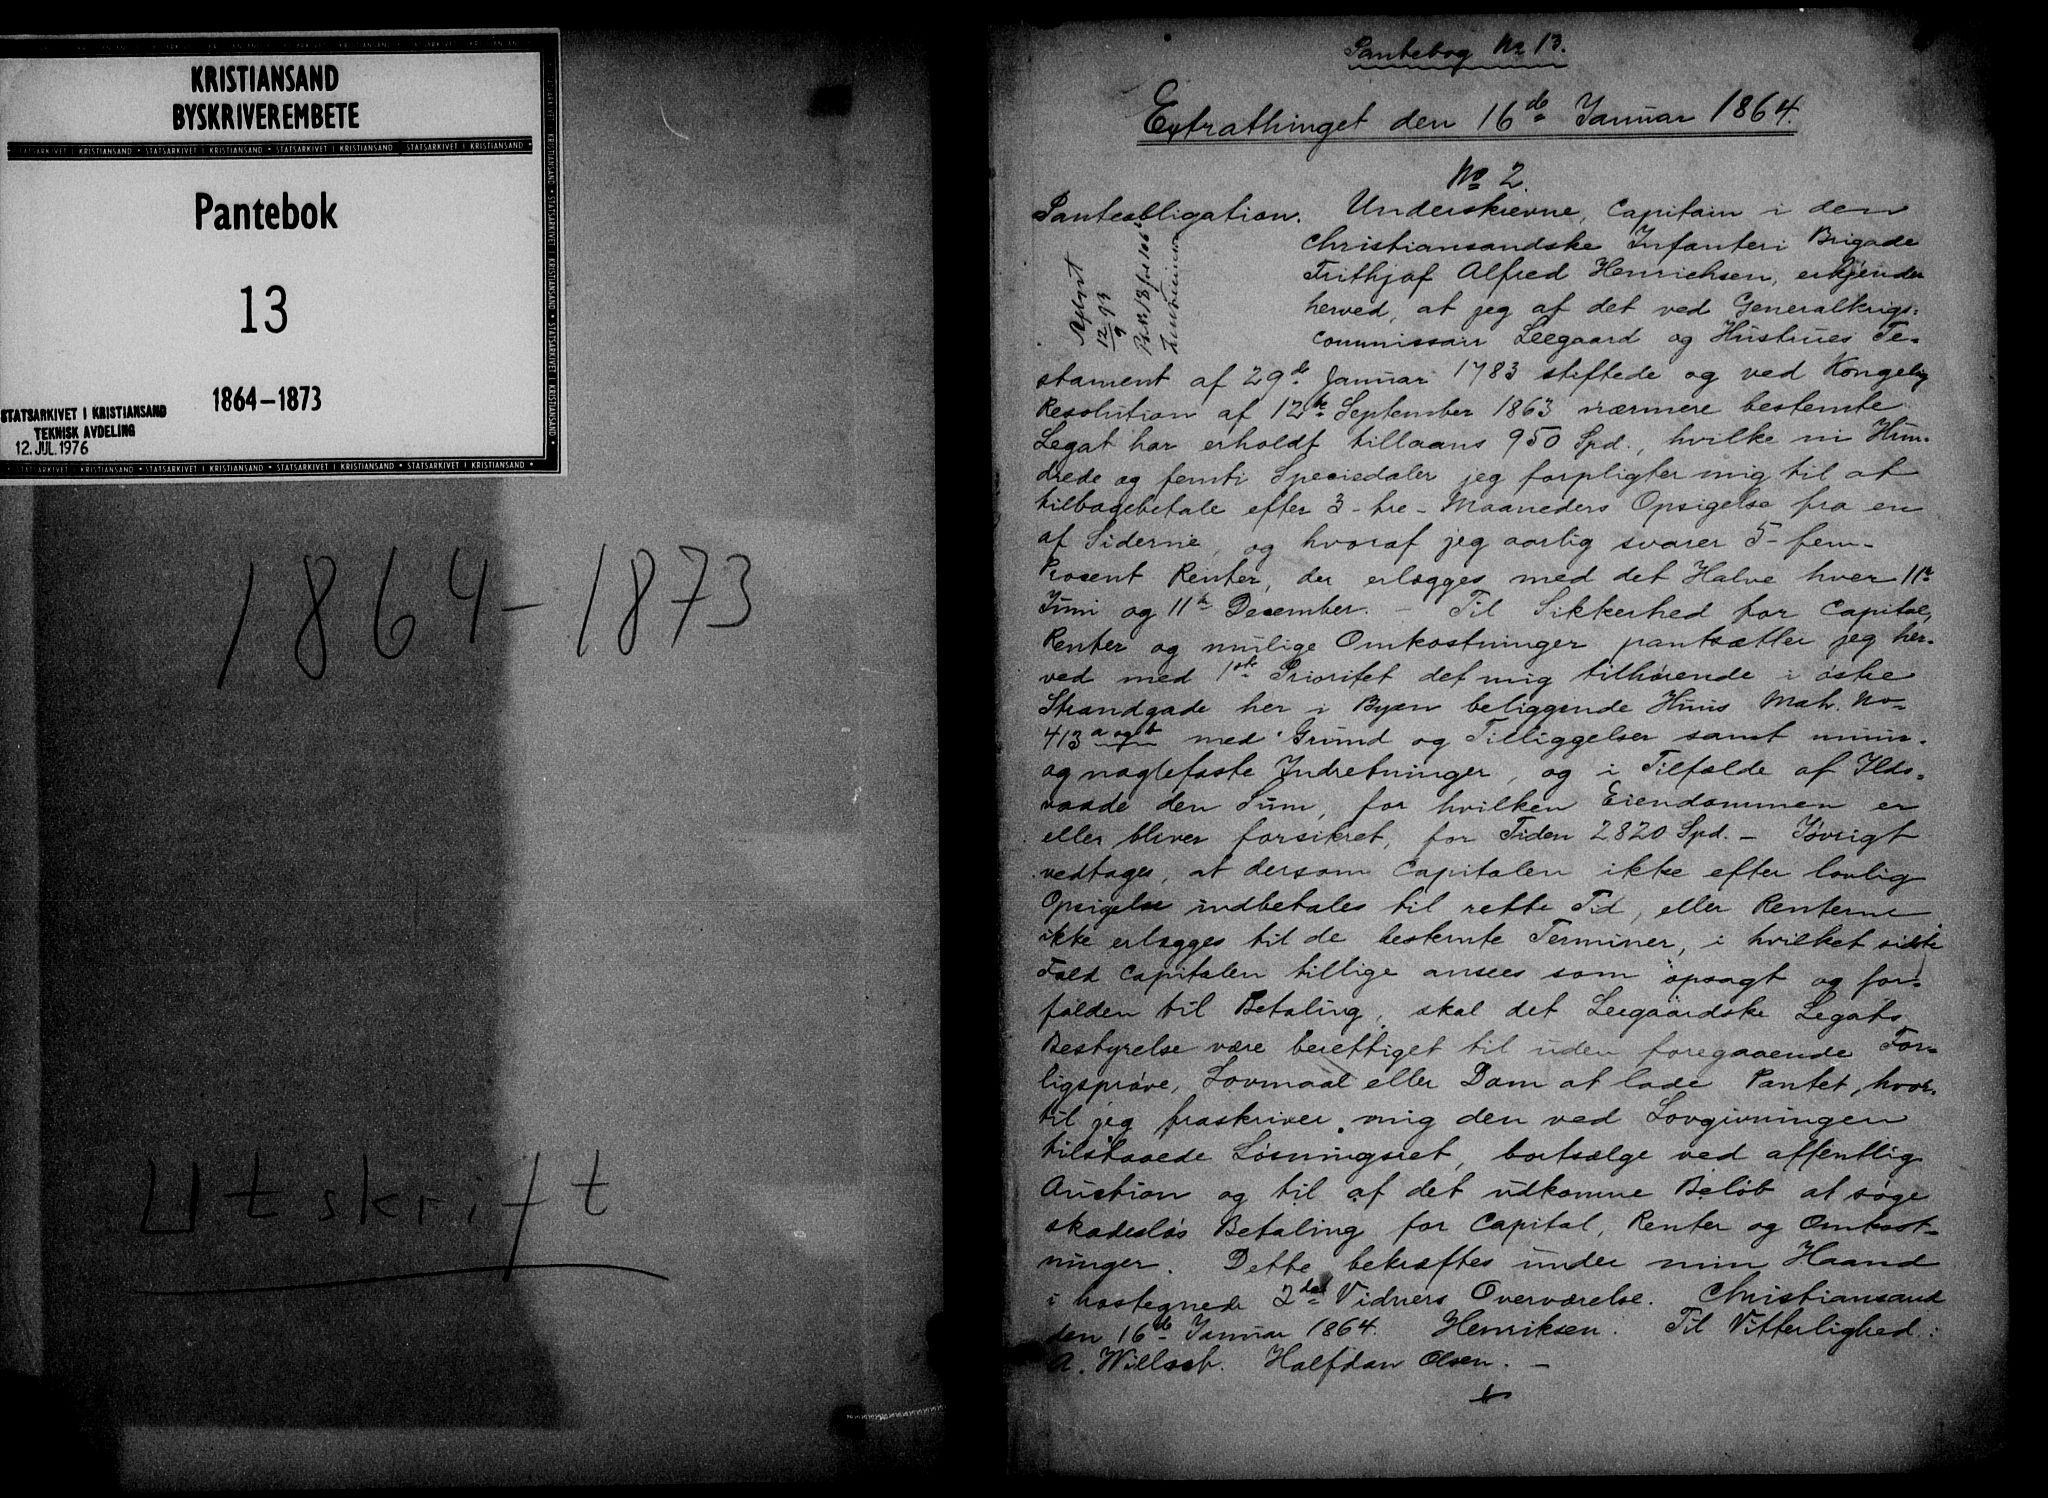 KRISTIANSAND
BYSKRIVEREMBETE
STATSARKIVET I KRISTIANSAND • STATSARKIVET I KRISTIANSAND • STATSARKIVET I KRISTIANSAND • STATSARKIVET I KRISTIANSAND •
Pantebok
13
1864–1873
STATSARKIVET I KRISTIANSAND
TEKNISK AVDELING
12. JUL. 1976
1864–1873
Utskrift
Pantebog No 13.
Extrathinget den 16de Januar 1864.
No 2.
Panteobligation. Underskrevne, Capitain i den
Christiansandske Infanteri Brigade
Frithjof Alfred Henrichsen, erkjender
herved, at jeg af det ved Generalkrigs-
commissair Leegaard og Hustrues Te-
Aflyst
12/9 93
stament af 29de Januar 1783 stiftede og ved Kongelig
Resolution af 12te September 1863 nærmere bestemte
Legat har erholdt tillaans 950 Spd., hvilke ni Hun-
drede og femti Speciedaler jeg forpligter mig til at
tilbagebetale efter 3 - tre - Maaneders Opsigelse fra en
af Siderne, og hvoraf jeg aarlig svarer 5 - fem -
Prosent Renter, der erlægges med det Halve hver 11te
Juni og 11te December. - Til Sikkerhed for Capital,
Renter og mulige Omkostninger pantsætter jeg her-
ved med 1ste Prioritet det mig tilhørende i østre
Strandgade her i Byen beliggende Huus Matr. No-
413 a og b med Grund og Tilliggelser samt muur-
og naglefaste Indretninger, og i Tilfælde af Ilds-
vaade den Sum, for hvilken Eiendommen er
eller bliver forsikret, for Tiden 2820 Spd. - Iøvrigt
vedtages, at dersom Capitalen ikke efter lovlig
Opsigelse indbetales til rette Tid, eller Renterne
ikke erlægges til de bestemte Terminer, i hvilket sidste
Fald Capitalen tillige ansees som opsagt og for-
falden til Betaling, skal det Leegaardske Legats
Bestyrelse være berettiget til uden foregaaende For-
ligsprøve, Lovmaal eller Dom at lade Pantet, hvor-
til jeg fraskriver mig den ved Lovgivningen
tilstaaede Løsningsret, bortsælge ved offentlig
Auction og til af det udkomne Beløb at søge
skadesløs Betaling for Capital, Renter og Omkost-
ninger. Dette bekræftes under min Haand
i hostegnede 2de Vidners Overværelse. Christiansand
den 16de Januar 1864. Henriksen. Til Vitterlighed:
A. Willoch. Halfdan Olsen. -